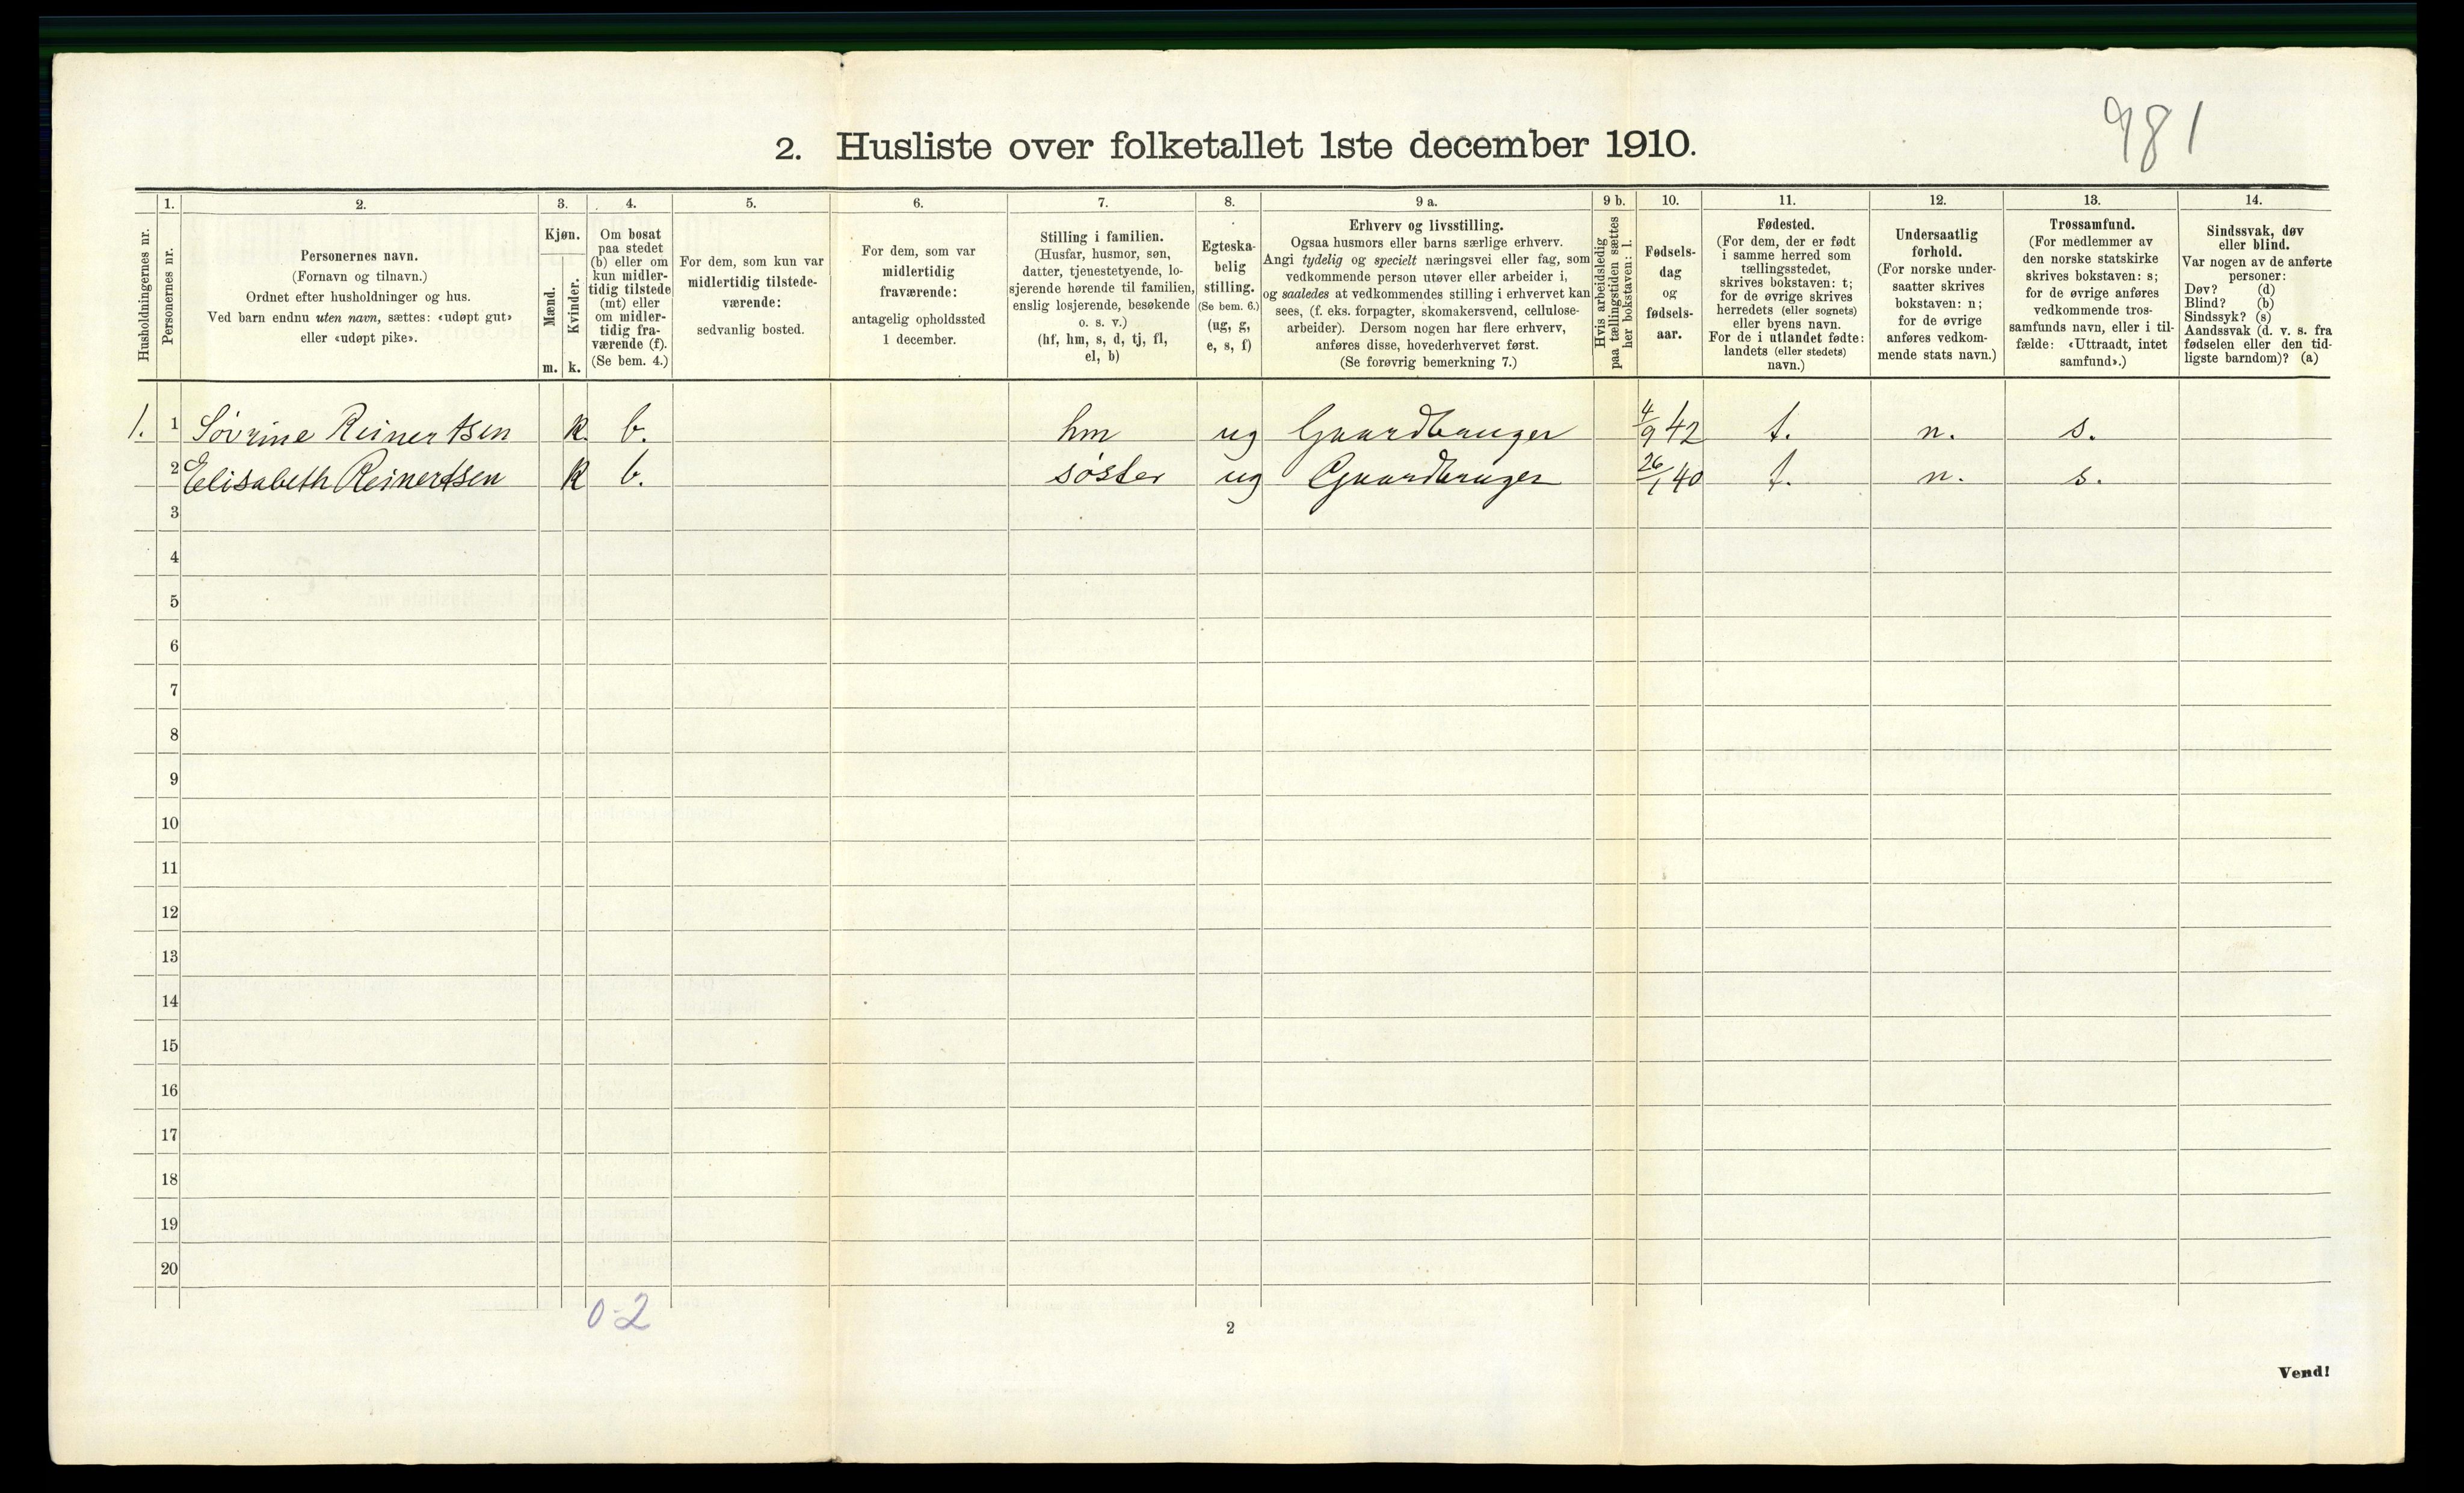 981
2. Husliste over folketallet 1ste december 1910.
Husholdningernes nr.
1.
Personernes nr.
2.
Personernes navn.
(Fornavn og tilnavn.)
Ordnet efter husholdninger og hus.
Ved barn endnu uten navn, sættes: «udøpt gut»
eller «udøpt pike».
3.
Kjøn.
Mænd.
Kvinder.
m. k.
4.
Om bosat
paa stedet
(b) eller om
kun midler-
tidig tilstede
(mt) eller
om midler-
tidig fra-
værende (f).
(Se bem. 4.)
5.
For dem, som kun var
midlertidig tilstede-
værende:
sedvanlig bosted.
6.
For dem, som var
midlertidig
fraværende:
antagelig opholdssted
1 december.
7.
Stilling i familien.
(Husfar, husmor, søn,
datter, tjenestetyende, lo-
sjerende hørende til familien,
enslig losjerende, besøkende
o. s. v.)
(hf, hm, s, d, tj, fl,
el, b)
8.
Egteska-
belig
stilling.
(Se bem. 6.)
(ug, g,
e, s, f)
9 a.
Erhverv og livsstilling.
Ogsaa husmors eller barns særlige erhverv.
Angi tydelig og specielt næringsvei eller fag, som
vedkommende person utøver eller arbeider i,
og saaledes at vedkommendes stilling i erhvervet kan
sees, (f. eks. forpagter, skomakersvend, cellulose-
arbeider). Dersom nogen har flere erhverv,
anføres disse, hovederhvervet først.
(Se forøvrig bemerkning 7.)
9 b.
Hvis arbeidsledig
paa tællingstiden sættes
her bokstaven: l.
10.
Fødsels-
dag
og
fødsels-
aar.
11.
Fødested.
(For dem, der er født
i samme herred som
tællingsstedet,
skrives bokstaven: t;
for de øvrige skrives
herredets (eller sognets)
eller byens navn.
For de i utlandet fødte:
landets (eller stedets)
navn.)
12.
Undersaatlig
forhold.
(For norske under-
saatter skrives
bokstaven: n;
for de øvrige
anføres vedkom-
mende stats navn.)
13.
Trossamfund.
(For medlemmer av
den norske statskirke
skrives bokstaven: s;
for de øvrige anføres
vedkommende tros-
samfunds navn, eller i til-
fælde: «Uttraadt, intet
samfund».)
14.
Sindssvak, døv
eller blind.
Var nogen av de anførte
personer:
Døv? (d)
Blind? (b)
Sindssyk? (s)
Aandssvak (d. v. s. fra
fødselen eller den tid-
ligste barndom)? (a)
1. 1 Sövrine Reinertsen k. b. hm ug Gaardbruger 4/9 42 t. n. s.
2 Elisabeth Reinertsen k b. söster ug Gaardbruger 26/1 40 t. n. s.
3
4
5
6
7
8
9
10
11
12
13
14
15
16
17
18
19
20
0-2
2
Vend!